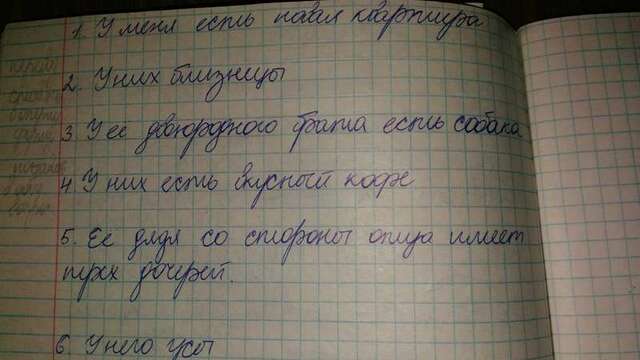 1. У меня есть новая квартира
2. У них близнецы
3 У ее двоюродного брата есть собака
4. У них есть вкусный кофе
5. Ее дядя со стороны отца имеет
трех дочерей.
6 У него